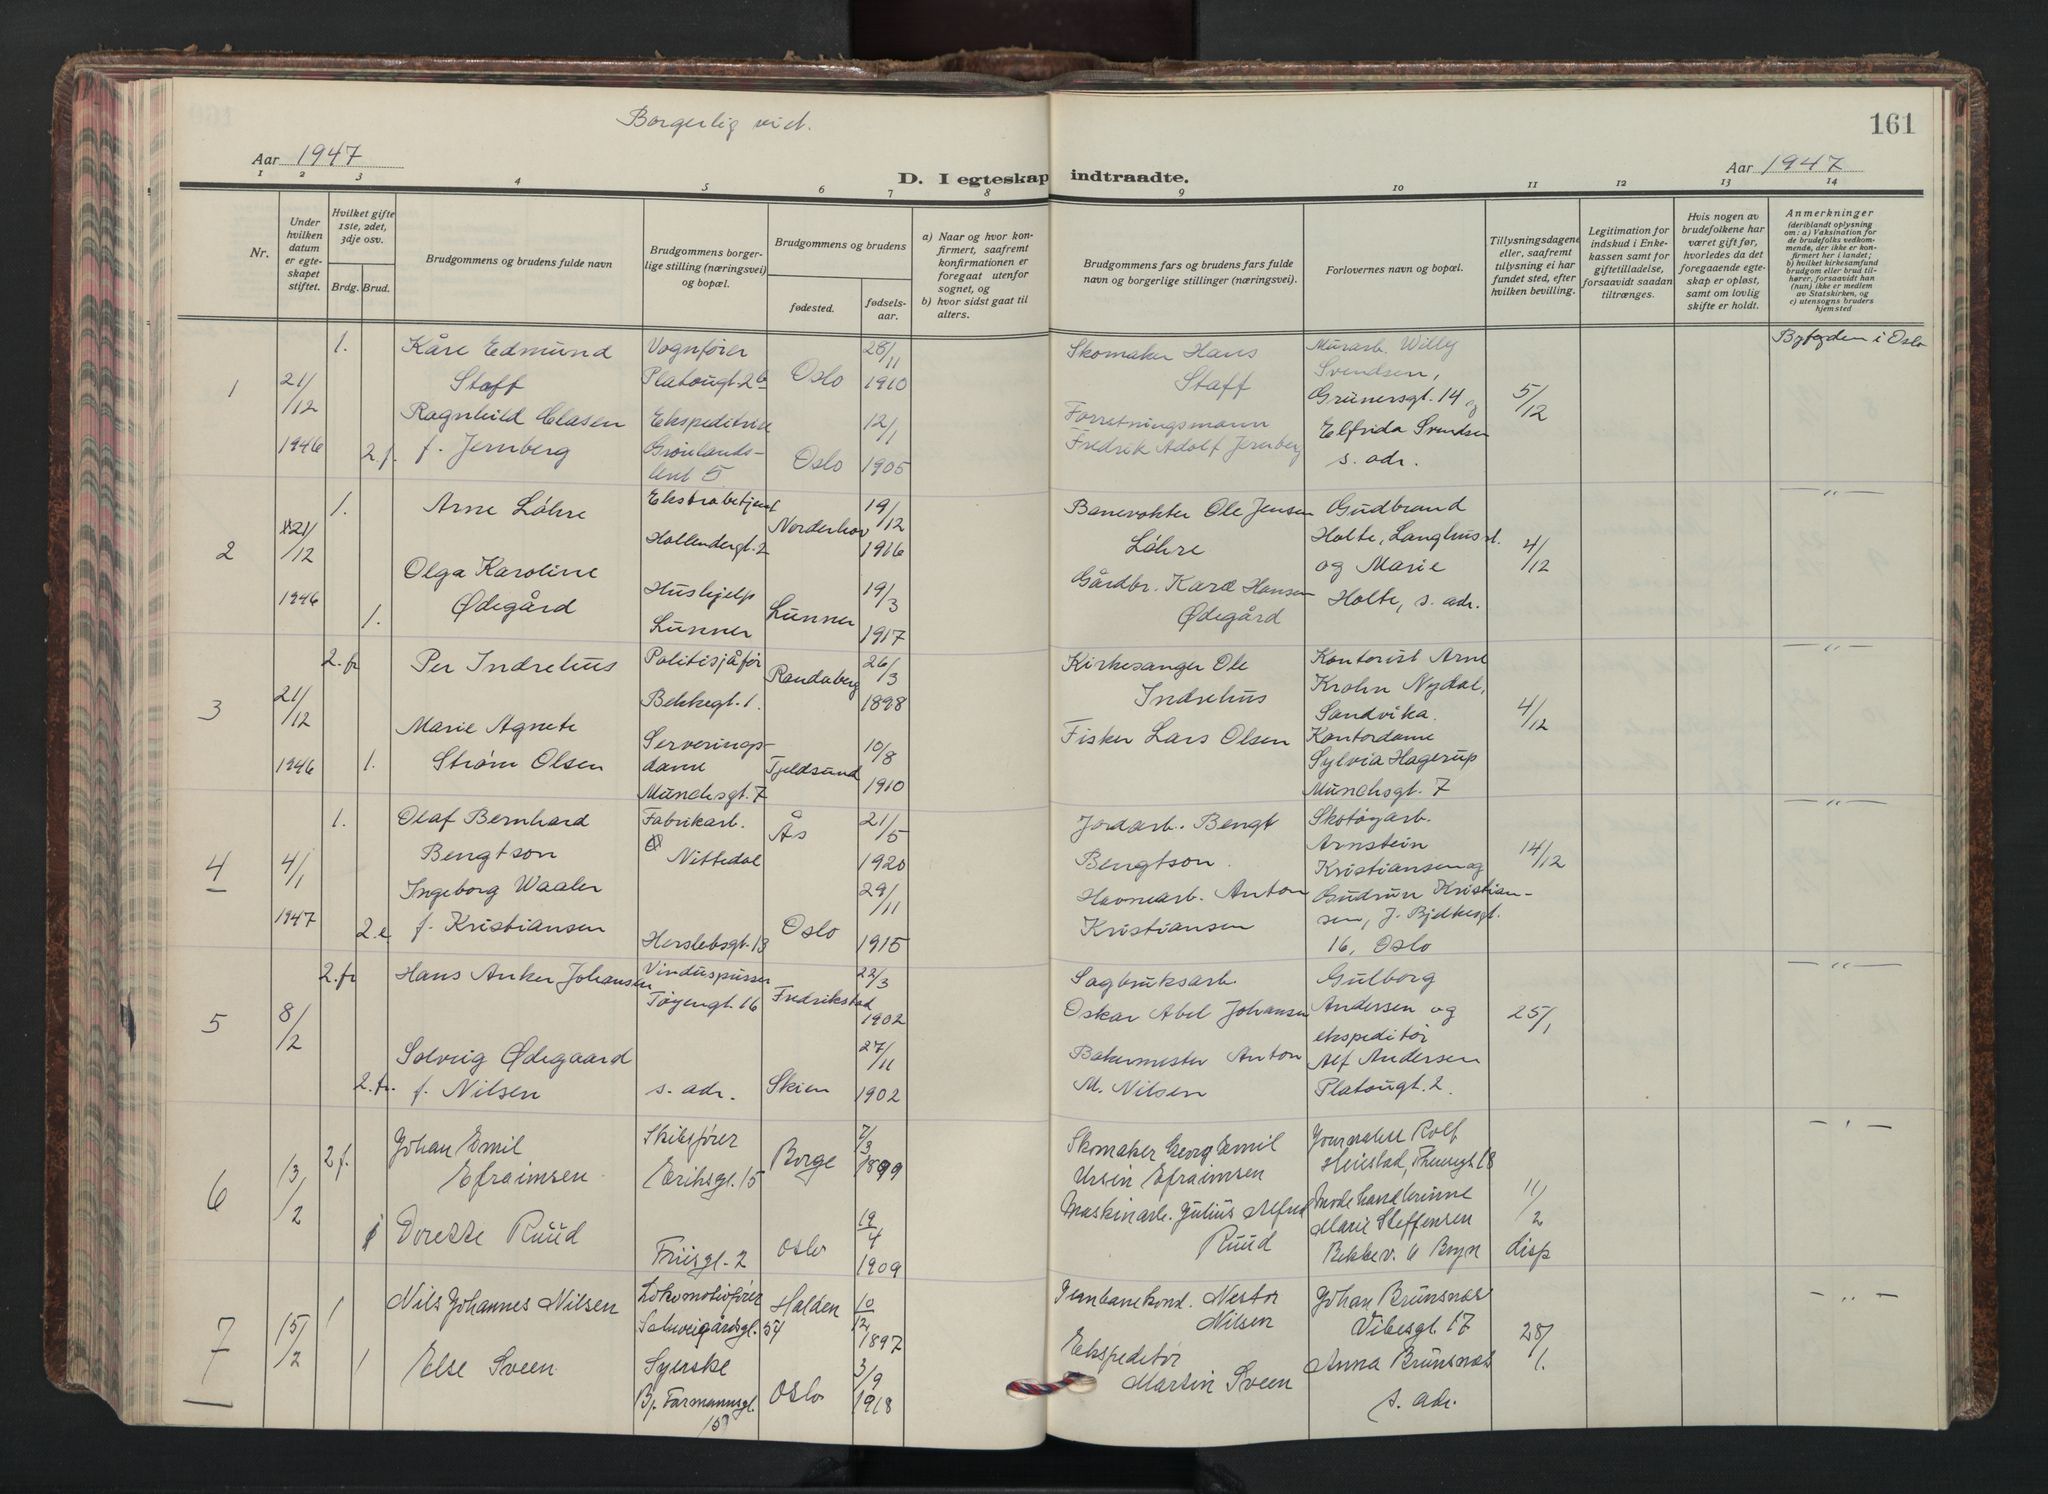 Borgerlig vid.
161
Aar 1947
D. I egteskap indtraadte.
Aar 1947
1 2 3 4 5 6 7 8 9 10 11 12 13 14
Nr.
Under hvilken datum er egteskapet stiftet.
Hvilket gifte 1ste, 2det, 3dje osv.
Brdg. Brud.
Brudgommens og brudens fulde navn
Brudgommens borgerlige stilling (næringsvei) og bopæl.
Brudgommens og brudens
fødested.
fødselsaar.
a) Naar og hvor konfirmert, saafremt konfirmationen er foregaat utenfor sognet, og
b) hvor sidst gaat til alters.
Brudgommens fars og brudens fars fulde navn og borgerlige stillinger (næringsvei).
Forlovernes navn og bopæl.
Tillysningsdagene eller, saafremt tillysning ei har fundet sted, efter hvilken bevilling.
Legitimation for indskud i Enkekassen samt for giftetilladelse, forsaavidt saadan tiltrænges.
Hvis nogen av brudefolkene har været gift før, hvorledes da det foregaaende egteskap er opløst, samt om lovlig skifte er holdt.
Anmerkninger (deriblandt oplysning om: a) Vaksination for de brudefolks vedkommende, der ikke er konfirmert her i landet; b) hvilket kirkesamfund brudgom eller brud tilhører, forsaavidt han (hun) ikke er medlem av Statskirken, og c) utensogns bruders hjemsted
1
21/12 1946
1.
Kåre Edmund
Staff
Vognfører
Platougt. 26
Oslo
28/11 1910
Skomaker Hans
Staff
Murarb. Willy
Svendsen,
Grünersgt. 14 og
Elfrida Svendsen
s. adr.
5/12
Byfogden i Oslo
2 f.
Ragnhild Clasen
f. Jernberg
Ekspeditrise
Grønlands-
leret 5
Oslo
12/1 1905
Forretningsmann
Fredrik Adolf Jernberg
2
21/12 1946
1.
Arne Löhre
Ekstrabetjent
Hollendergt. 2
Norderhov
19/12 1916
Banevokter Ole Jensen
Löhre
Gudbrand
Holte, Langhus st.
og Marie
Holte, s. adr.
4/12
— " —
1.
Olga Karoline
Ødegård
Hushjelp
Lunner
Lunner
19/3 1917
Gårdbr. Karl Hansen
Ødegård
3
21/12 1946
2. fr
Per Indrehus
Politisjåfør
Bekkegt. 1.
Randaberg
26/3 1898
Kirkesanger Ole
Indrehus
Kontorist Arne
Krohn Nydal,
Sandvika.
Kontordame
Sylvia Hagerup
Munchsgt. 7
4/12
— " —
1.
Marie Agnete
Strøm Olsen
Serverings-
dame
Munchsgt. 7
Tjeldsund
10/8 1910
Fisker Lars Olsen
4
4/1 1947
1.
Olaf Bernhard
Bengtson
Fabrikarb.
Nittedal
Ås
21/5 1920
Jordarb. Bengt
Bengtson.
Skotøyarb.
Arnstein
Kristiansen og
Gudrun Kristian-
sen, J. Bjelkesgt.
16, Oslo
14/12
— " —
2. e
Ingeborg Waaler
f. Kristiansen
Herslebsgt. 13
Oslo
29/11 1915
Havnearb. Anton
Kristiansen
5
8/2
2. fr
Hans Anker Johansen
Vinduspusser
Tøyengt. 16
Fredrikstad
22/3 1902
Sagbruksarb.
Oskar Abel Johansen
Gulborg
Andersen og
ekspeditør
Alf Andersen
Platougt. 2.
25/1
— " —
2. fr.
Solveig Ødegaard
f. Nilsen
s. adr.
Skien
27/11 1902
Bakermester Anton
M. Nilsen
6
13/2
2 f.
Johan Emil
Efraimsen
Skibsfører
Eriksgt. 15
Borge
7/3 1899
Skomaker Georg Emil
Ursin Efraimsen
Journalist Rolf
Heiestad, 18
Modehandlerinne
Marie Steffensen
Bekkev. 6 Bryn
11/2
disp
— " —
1
Dorette Ruud
Friisgt. 2
Oslo
19/4 1909
Maskinarb. Julius Alfred
Ruud
7
15/2
1
Nils Johannes Nilsen
Lokomotivfører
Schweigårdsgt. 54
Halden
10/12 1897
Jernbanekond. Nestor
Nilsen
Johan Brunsnæs
Vibesgt. 17
Anna Brunsnæs
s. adr.
28/1.
— " —
1
Else Sveen
Syerske
Bj. Farmannsgt.
15
Oslo
3/9 1918
Ekspeditør
Martin Sveen